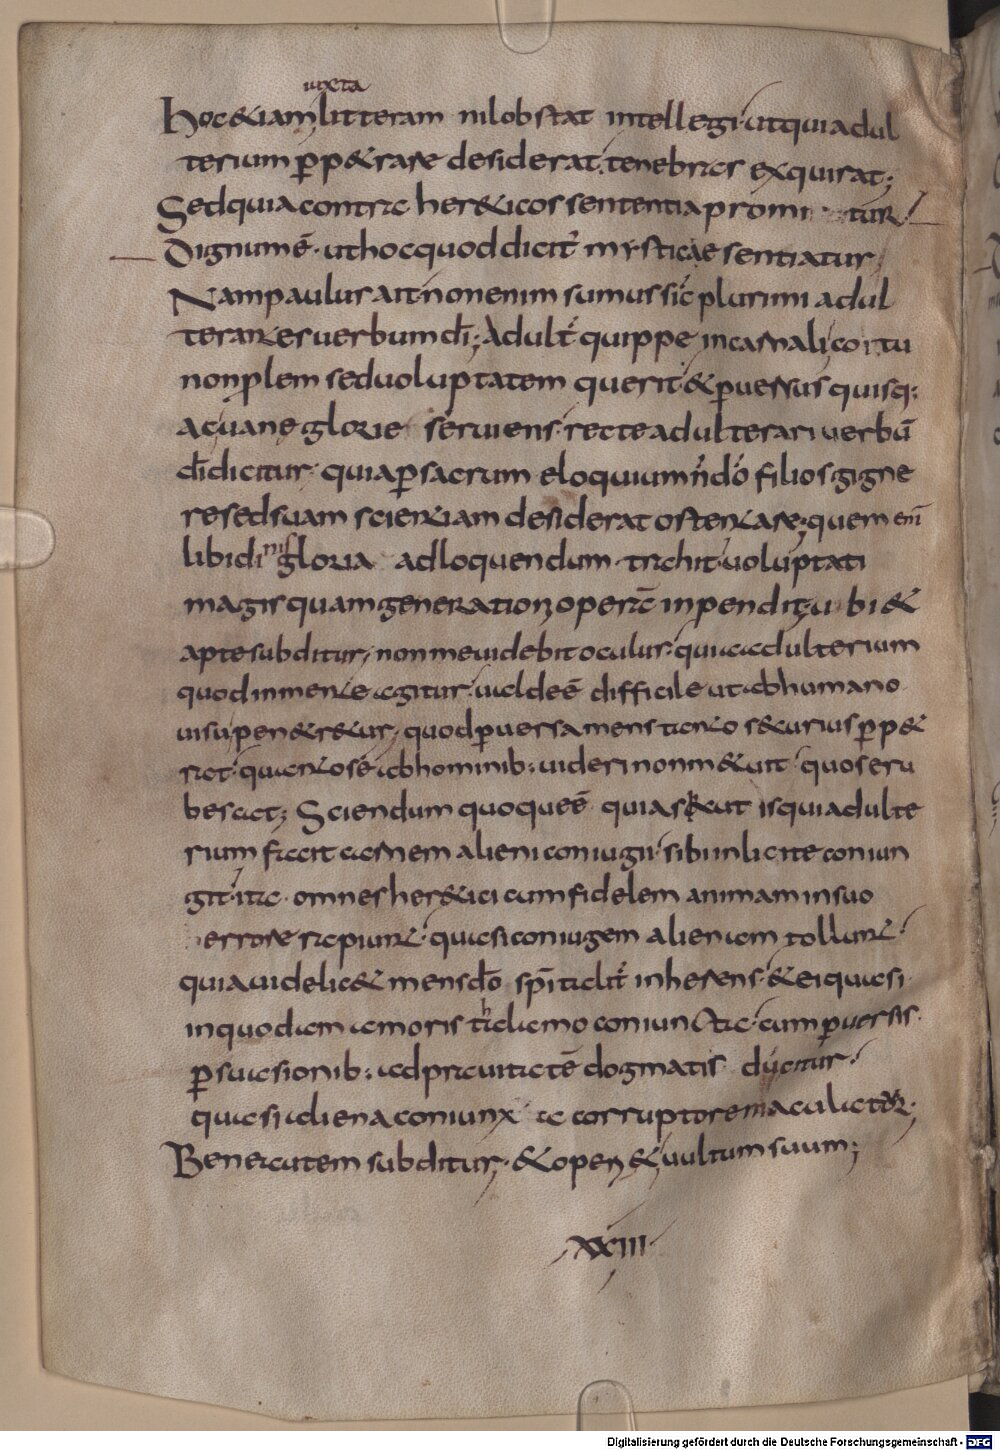 iuxta
Hoc &iam litteram nil obstat intellegi· ut qui adul
terium p̱p&rare desiderat. tenebras exquirat;
Sed quia contra her&icos sententia promi tur·
Dignum ē· ut hoc quod dicit̄ mysticae sentiatur;
Nam paulus ait· non enim sumus sic̄ plurimi adul
terantes uerbum dī; Adult̄ quippe in carnali coitu
non plem sed uoluptatem querit· & p̱uersus quisq:
ac uane glorie seruiens· recte adulterari uerbū
dī dicitur· quia p̱ sacrum eloquium n̄ dō filios gigne
re sed suam scientiam desiderat ostentare; quem eni
libidi nis gloria ad loquendum trahit· uoluptati
magis quam generationi operā inpendit; u bi &
apte subditur, non me uidebit oculus· quia adulterium
quod in mente agitur· ualde ē difficile ut ab humano
uisu pen&r&ur; quod p̱uersa mens tanto securius p̱p&
rat· quanto se ab hominib: uideri non m&uit quos eru
bescat; Sciendum quoque ē quia sicut is qui adulte
rium facit carnem alieni coniugii· sibi inlicite coniun
git· ita· omnes her&ici cum fidelem animam in suo
errore rapiunt· quasi coniugem alienam tollunt·
quia uidelic& mens dō spīritalit̄ inherens· & ei quasi
in quodam amoris thalamo coniuncta· cum p̱uersis·
p̱suasionib: ad prauitatē dogmatis ducitur·
quasi aliena coniunx a corruptore maculatur;
Bene autem subditur, & operi& uultum suum;
XXIII
Digitalisierung gefördert durch die Deutsche Forschungsgemeinschaft - DFG